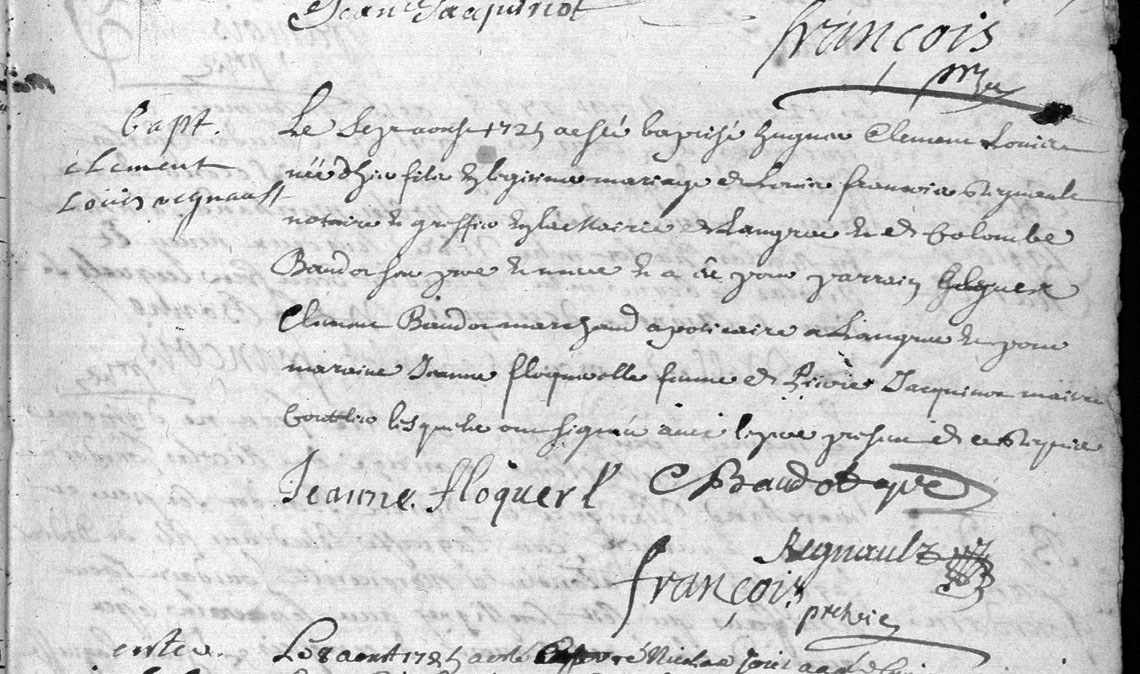 Jean Jacquinot
françois
ptre
bapt.
clement
Louis regnault
Le Sept aoust 1725 a esté baptisé hugues Clement Louis
né d'hier fils en legitime mariage de Louis françois Regnault
notaire et greffier en la Mairie de Langres et de Colombe
Baudot ses pere et mere et a eu pour parrain hugues
Clement Baudot marchand apoticaire a Langres et pour
maraine Jeanne floquerelle femme de Jacquinot maitre
lesquels ont signés avec le pere present et
Jeanne floquerel
C Baudot
Regnault
françois
ptre
enter.
Le 8 aout 1725 a esté Nicolas